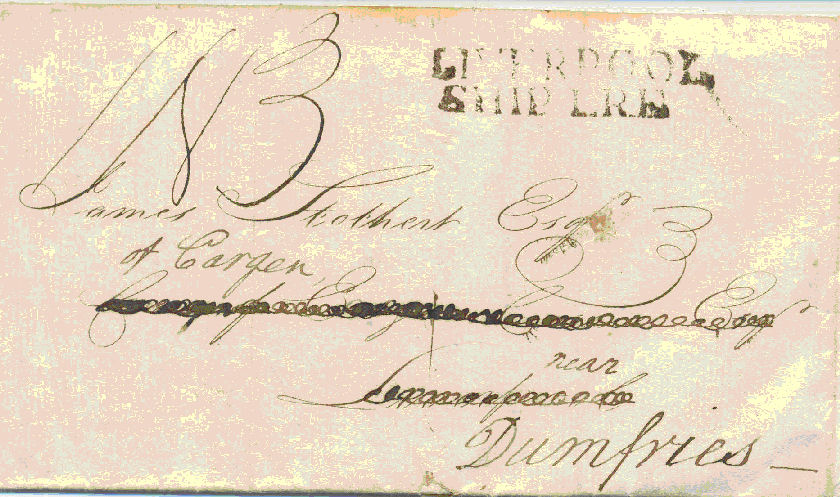 LIVERPOOL
SHIP LRE
1N3
James Stothert Esqr
3
of Cargen
Esqr
near
Dumfries